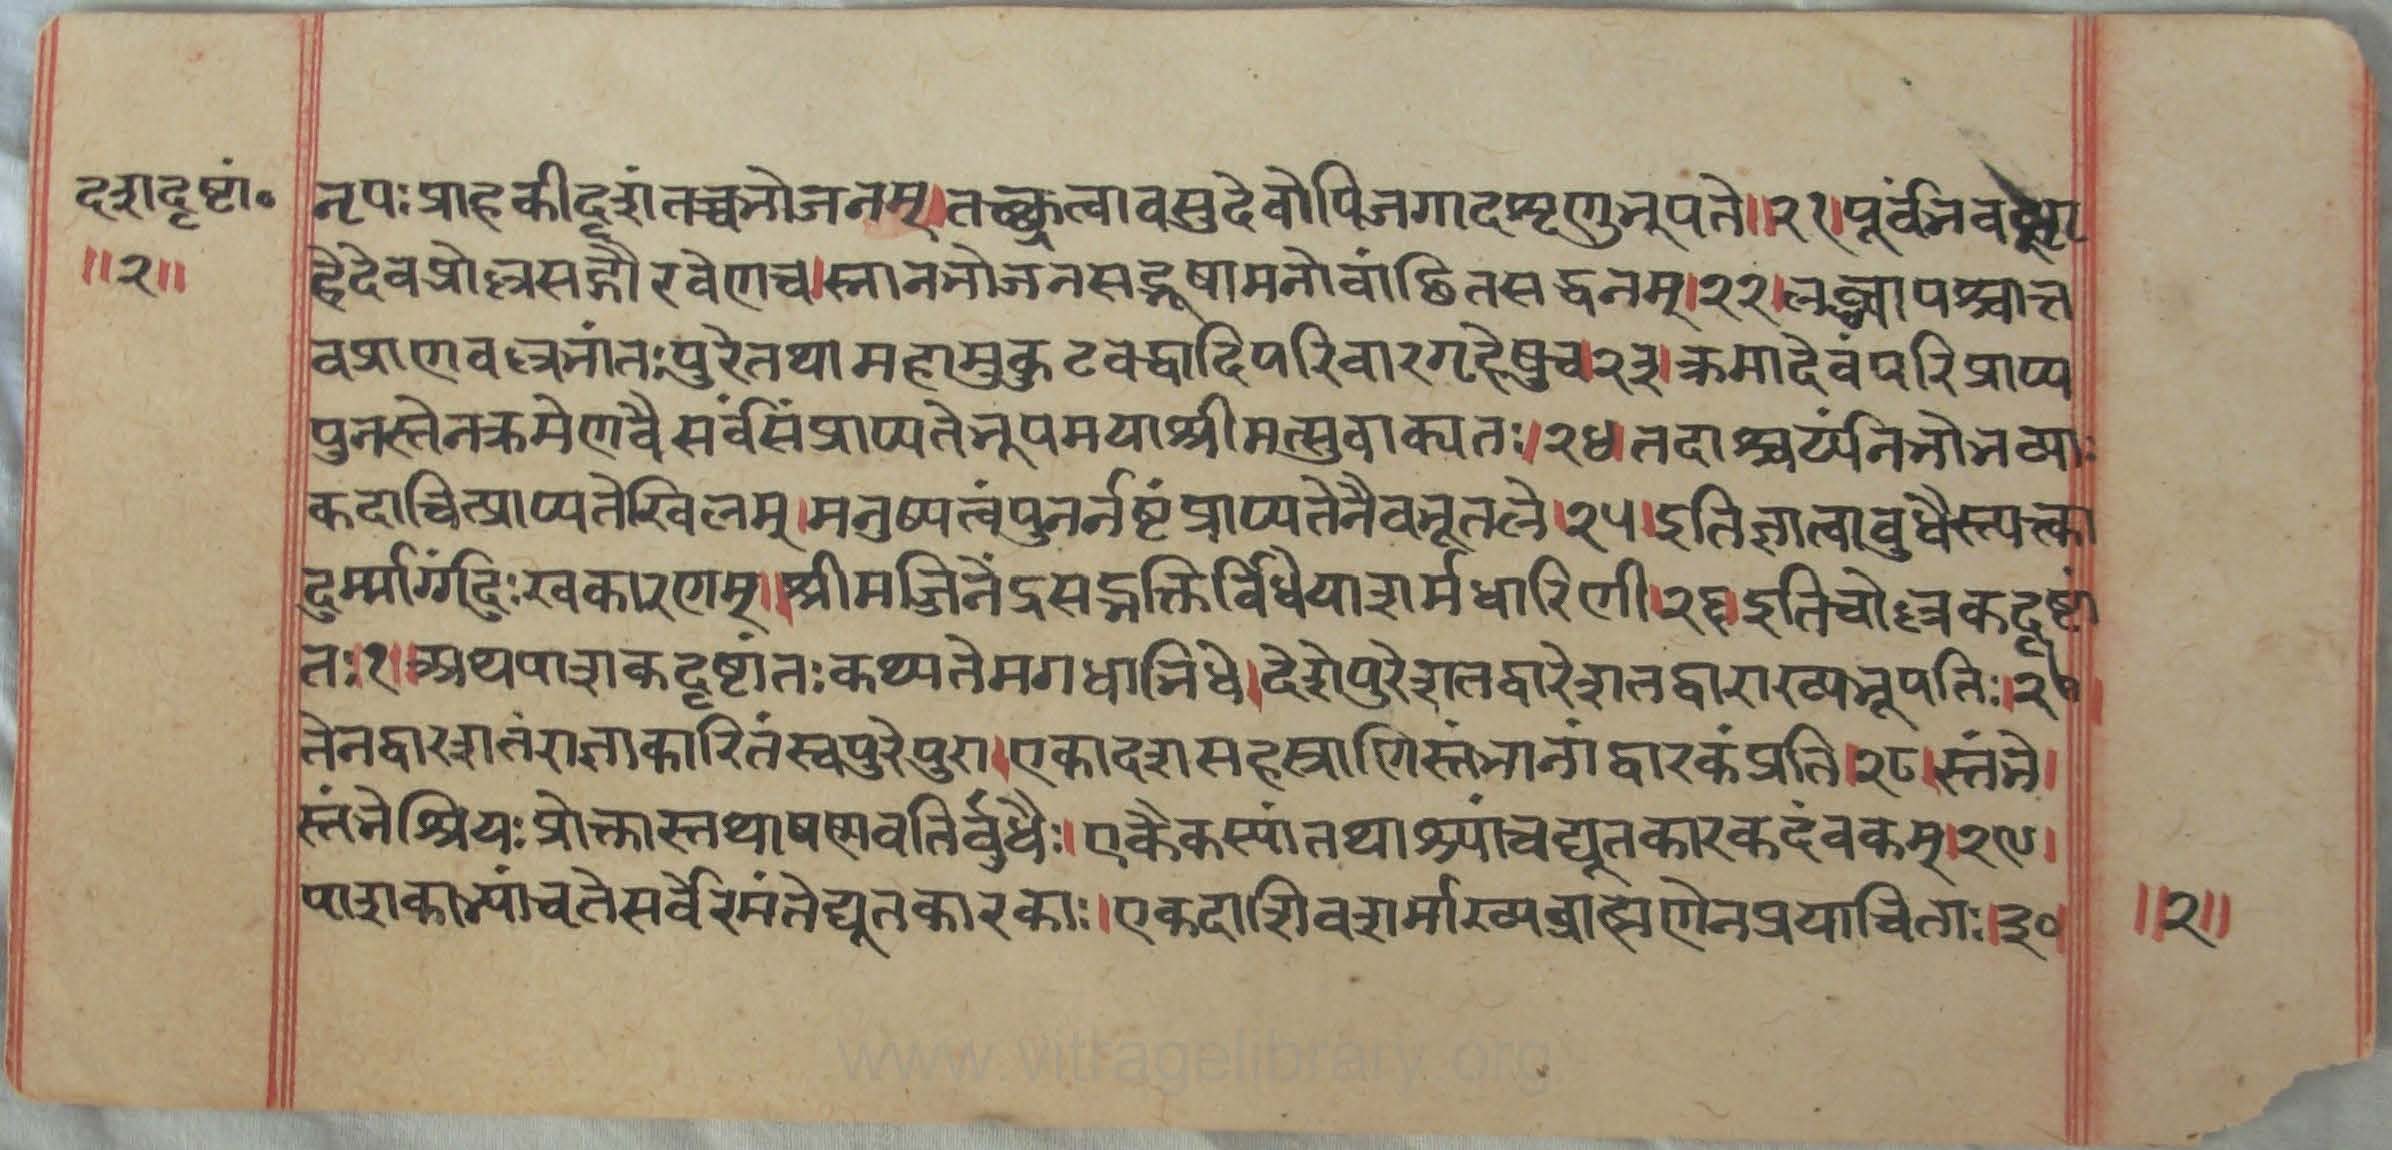 दशदृष्टां०
॥२॥
नृपः प्राह कीदृशं तच्च भोजनम्। तच्छ्रुत्वा वसुदेवोपि जगाद शृणु भूपते॥२१।पूर्वं भव
हे देव प्रोल्लसद्गौरवेण च।स्नानभोजनसद्भूषामनोवांछितसद्धनम्।२२।लब्ध्वा पश्चात्त
वप्राणवल्लभांतःपुरे तथा महामुकुटबद्धादिपरिवारगृहेषु च२३।क्रमादेवं परिप्राप्य
पुनस्तेन क्रमेण वै सर्वं संप्राप्यते भूप मया श्रीमत्सुवाक्यतः।२४।तदाश्चर्य्यंनिभो भव्याः
कदाचित्प्राप्यतेखिलम्।मनुष्यत्वं पुनर्नष्टं प्राप्यते नैव भूतले।२५।इति ज्ञात्वा बुधैस्त्यक्त्वा
दुर्म्मार्गं दुःखकारणम्।श्रीमज्जिनेंद्रसद्भक्तिर्विधेया शर्मधारिणी।२६।इति चोल्लकदृष्टां
तः।१।अथ पाशकदृष्टांतः कथ्यते मगधाभिधे।देशे पुरे शतद्वारे शतद्वाराख्यभूपतिः।२७
तेन द्वारशतं राज्ञा कारितं स्वपुरे पुरा।एकादशसहस्त्राणि स्तंभानां द्वारकं प्रति।२८।स्तंभे।
स्तंभे श्रियः प्रोक्तास्तथा षण्णवतिर्बुधैः।एकैकस्यां तथाश्र्यां च द्यूतकारकदंबकम्।२९।
पाशकाभ्यां च ते सर्वे रमंते द्यूतकारकाः।एकदा शिवशर्माख्यब्राह्मणेन प्रयाचिताः।३०
॥२॥
www.vitragelibrary.org